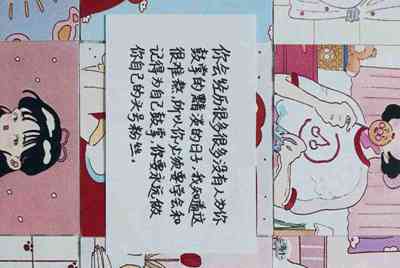 你会经历很多很多没有人为你
鼓掌的黯淡的日子,我知道这
很难熬,所以你必须要学会和
记得为自己鼓掌,你要永远做
你自己的头号粉丝。